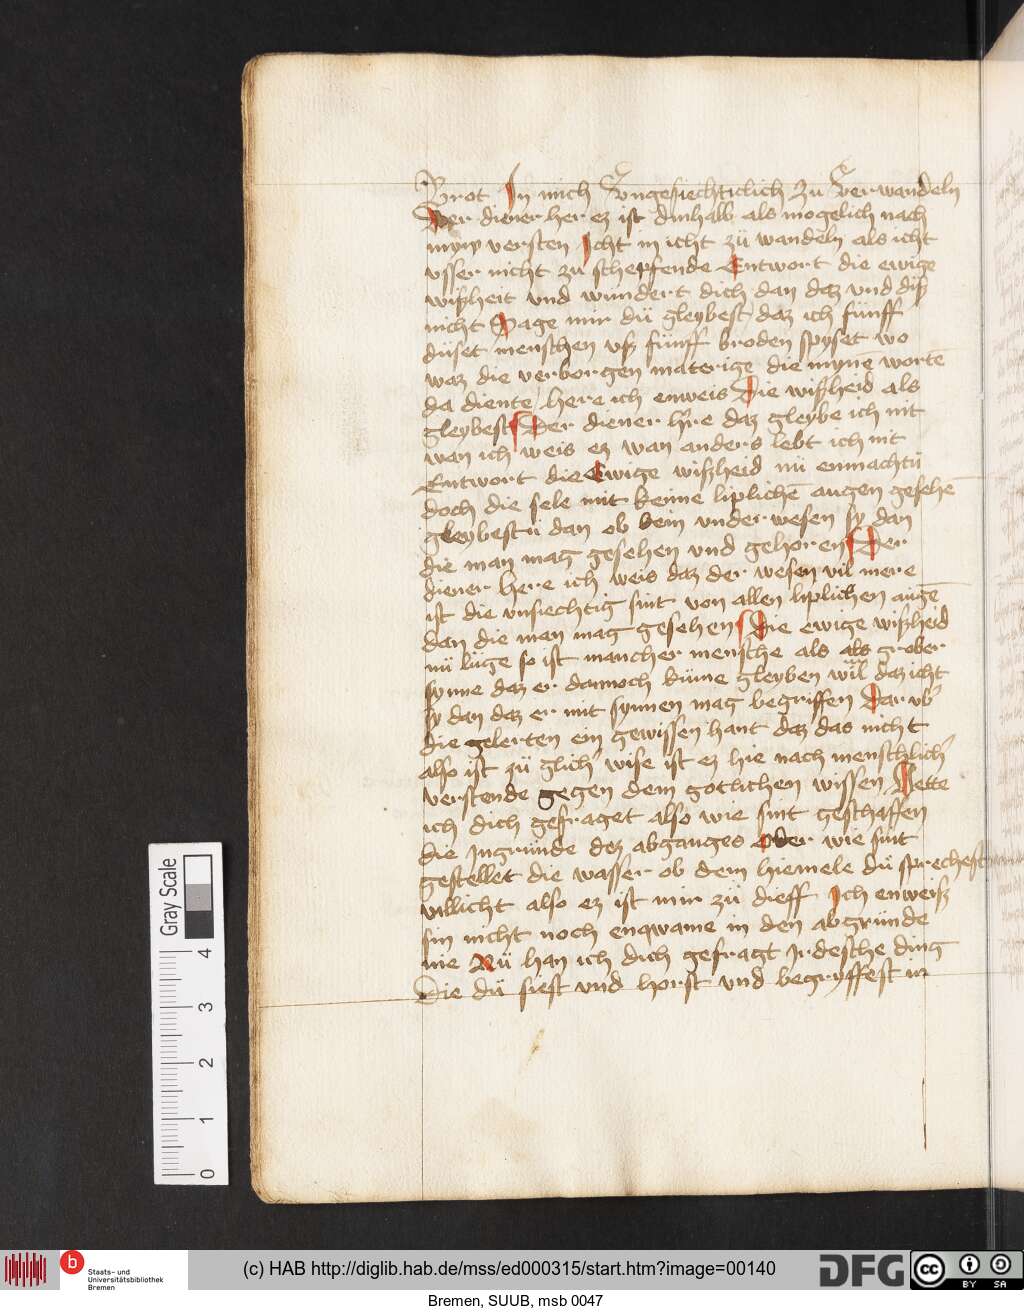 Brot In mich Vngesiechticlich zu Verwandeln
Der diener her ez ist dinhalb als mogelich nach
mym versten Icht in icht zü wandeln als icht
vsser nicht zu schepfende Entwort die ewige
wißheit vnd wundert dich dan daz vnd diß
nicht Sage mir dü gleybest daz ich fünff
düset menschen vß fünff broden spyset wo
waz die verborgen materige die mynē wortē
da diente here ich enweis Die wißheid als
gleybest Der diener h're daz gleybe ich nit
wan ich weis ez wan anders lebt ich nit
Entwort die Ewige wißheid nü enmachtü
doch die sele mit keine liplichē augen gesehē
gleybestü dan ob kein vnder wesen sy dan
die man mag gesehen vnd gehoren Der
diener here ich weis daz der wesen vil mere
ist die vnsiechtig sint von allen liplichen augē
dan die man mag gesehen Die ewige wißheid
nü lüge so ist mancher mensche als als grober
synne daz er dannoch küme gleyben wil daz icht
sy dan daz er mit synnen mag begriffen Dar vb'
die gelerten ein gewissen hant daz das nicht
also ist zü glich' wise ist ez hie nach menschlich'
verstende gegen dem gotlichen wissen Hette
ich dich gefraget also wie sint geschaffen
die Ingründe dez abganges oder wie sint
gestellet die wasser ob dem hiemele dü sprechest
villicht also ez ist mir zü dieff Ich enweiß
sin nicht noch enqwame in den abgründe
nie Nü han ich dich gefragt Irdesche ding
Die dü siest vnd horst vnd begryffest in
Gray Scale
4
3
2
1
0
b
Staats- und
Universitätsbibliothek
Bremen
(c) HAB http://diglib.hab.de/mss/ed000315/start.htm?image=00140
DFG
cc
BY SA
Bremen, SUUB, msb 0047